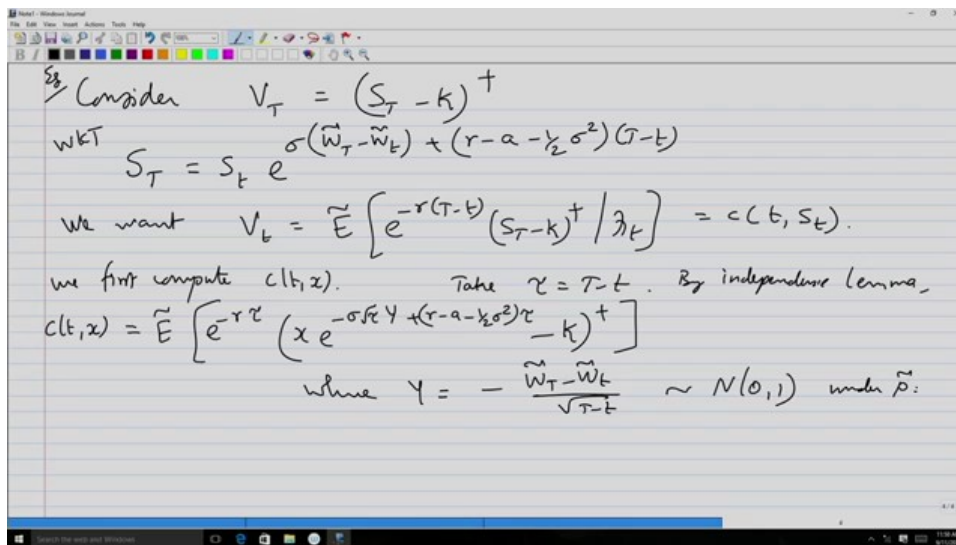 Note1 - Windows Journal
File Edit View Insert Actions Tools Help
B I
Eg Consider V_T = (S_T - K)^+
WKT
S_T = S_t e^{σ(W̃_T - W̃_t) + (r - a - ½σ²)(T-t)}
We want V_t = Ẽ[e^{-r(T-t)} (S_T - K)^+ / ℱ_t] = c(t, S_t).
we first compute c(t,x). Take τ = T-t. By independence lemma,
c(t,x) = Ẽ[e^{-rτ} (x e^{-σ√τ Y + (r-a-½σ²)τ} - K)^+]
where Y = - (W̃_T - W̃_t)/√(T-t) ~ N(0,1) under P̃.
4/4
Search the web and Windows